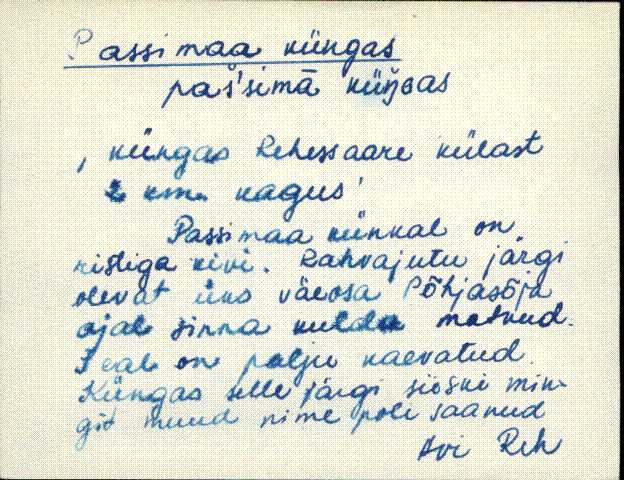 Passi maa küngas
paš̀simā küŋ̌G̀as
, küngas Rehessaare külast
2 km. kagus'
Passimaa künkal on
ristiga kivi. Rahvajutu järgi
olevat üks väeosa Põhjasõja
ajal sinna kulda matnud.
Seal on palju kaevatud.
Küngas selle järgi siiski min-
git muud nime pole saanud
Avi Reh